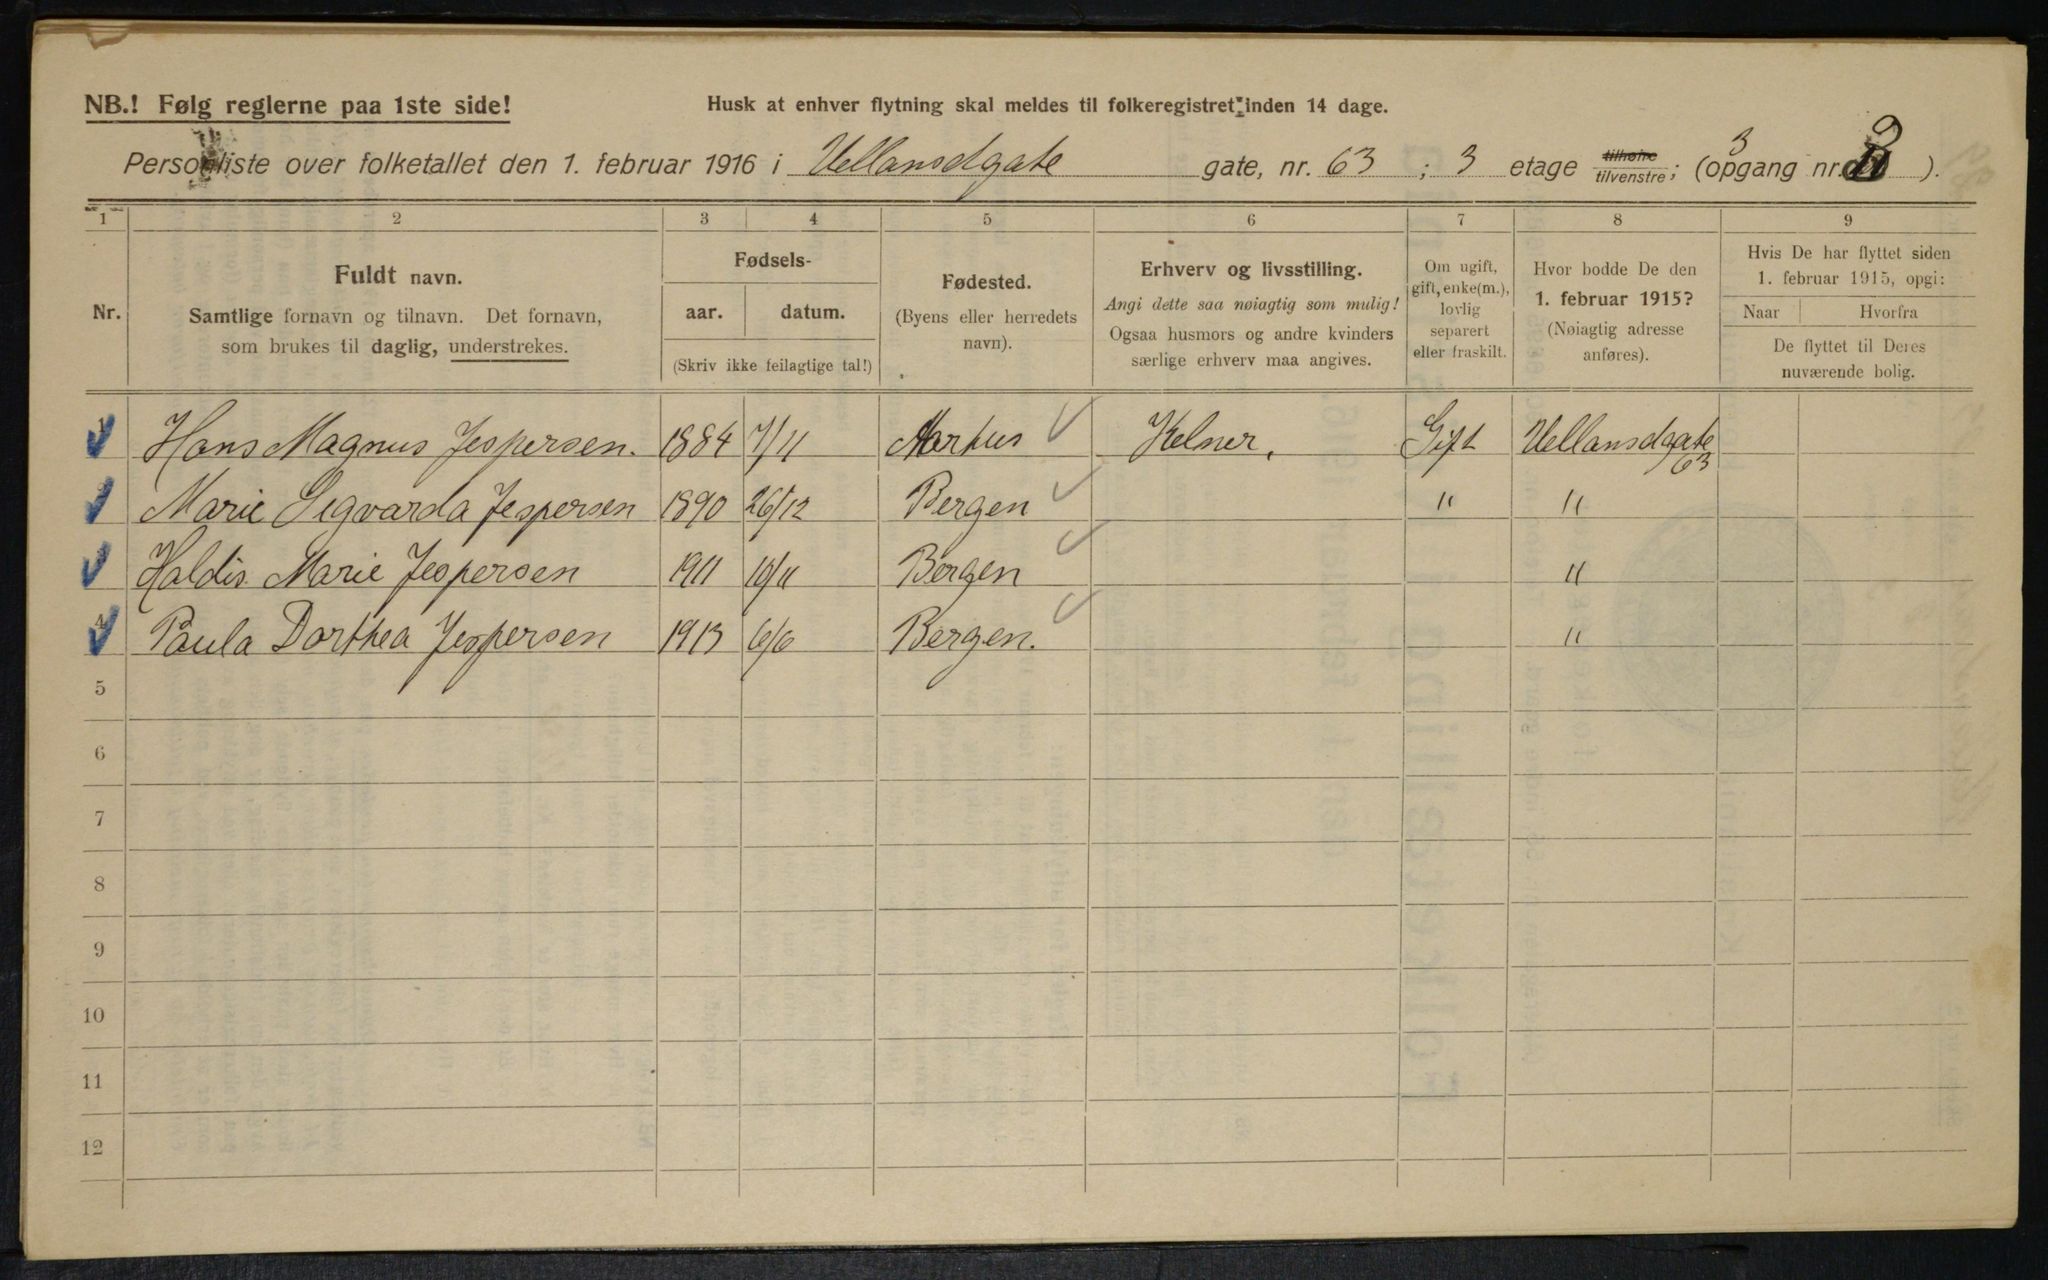 NB.! Følg reglerne paa 1ste side! Husk at enhver flytning skal meldes til folkeregistret inden 14 dage.
Personliste over folketallet den 1. februar 1916 i Uellansdgate gate, nr. 63 ; 3 etage tilhøire tilvenstre; (opgang nr. 3 ).
1 2 3 4 5 6 7 8 9
Nr.
Fuldt navn.
Samtlige fornavn og tilnavn. Det fornavn,
som brukes til daglig, understrekes.
Fødsels-
aar. datum.
(Skriv ikke feilagtige tal!)
Fødested.
(Byens eller herredets
navn).
Erhverv og livsstilling.
Angi dette saa nøiagtig som mulig!
Ogsaa husmors og andre kvinders
særlige erhverv maa angives.
Om ugift,
gift, enke(m.),
lovlig
separert
eller fraskilt.
Hvor bodde De den
1. februar 1915?
(Nøiagtig adresse
anføres).
Hvis De har flyttet siden
1. februar 1915, opgi:
Naar Hvorfra
De flyttet til Deres
nuværende bolig.
1 Hans Magnus Jespersen. 1884 7/11 Aarhus Kelner. Gift Uellansdgate 63
Marie Sigvarda Jespersen 1890 26/12 Bergen " "
Haldis Marie Jespersen 1911 10/11 Bergen "
4 Paula Dorthea Jespersen 1913 6/6 Bergen. "
5
6
7
8
9
10
11
12